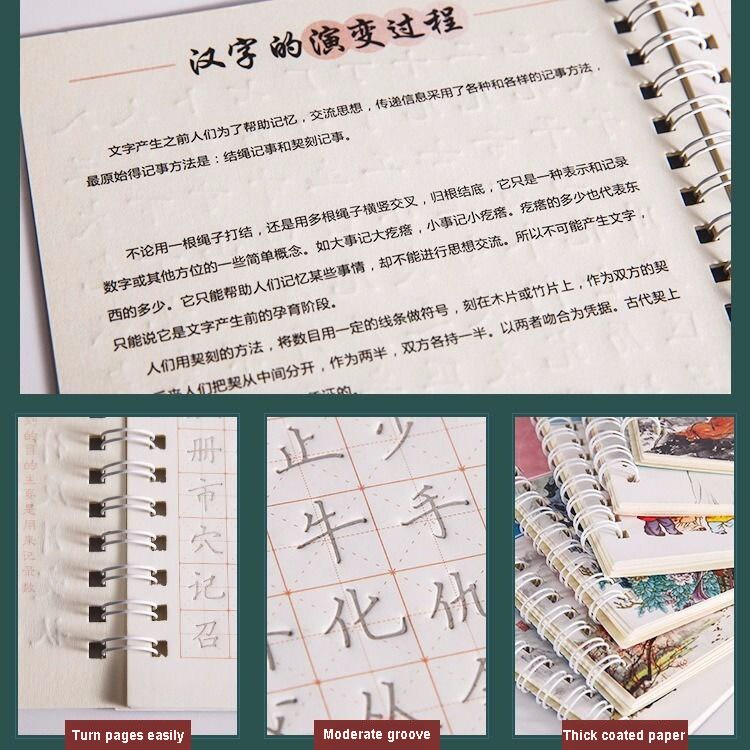 汉字的演变过程
文字产生之前人们为了帮助记忆，交流思想，传递信息采用了各种和各样的记事方法，
最原始得记事方法是：结绳记事和契刻记事。
不论用一根绳子打结，还是用多根绳子横竖交叉，归根结底，它只是一种表示和记录
数字或其他方位的一些简单概念。如大事记大疙瘩，小事记小疙瘩。疙瘩的多少也代表东
西的多少。它只能帮助人们记忆某些事情，却不能进行思想交流。所以不可能产生文字，
只能说它是文字产生前的孕育阶段。
人们用契刻的方法，将数目用一定的线条做符号，刻在木片或竹片上，作为双方的契
人们把契从中间分开，作为两半，双方各持一半。以两者吻合为凭据。古代契上
的目的主要是用来记录数，
册
市
穴
记
召
止少
牛手
化仇
Turn pages easily
Moderate groove
Thick coated paper